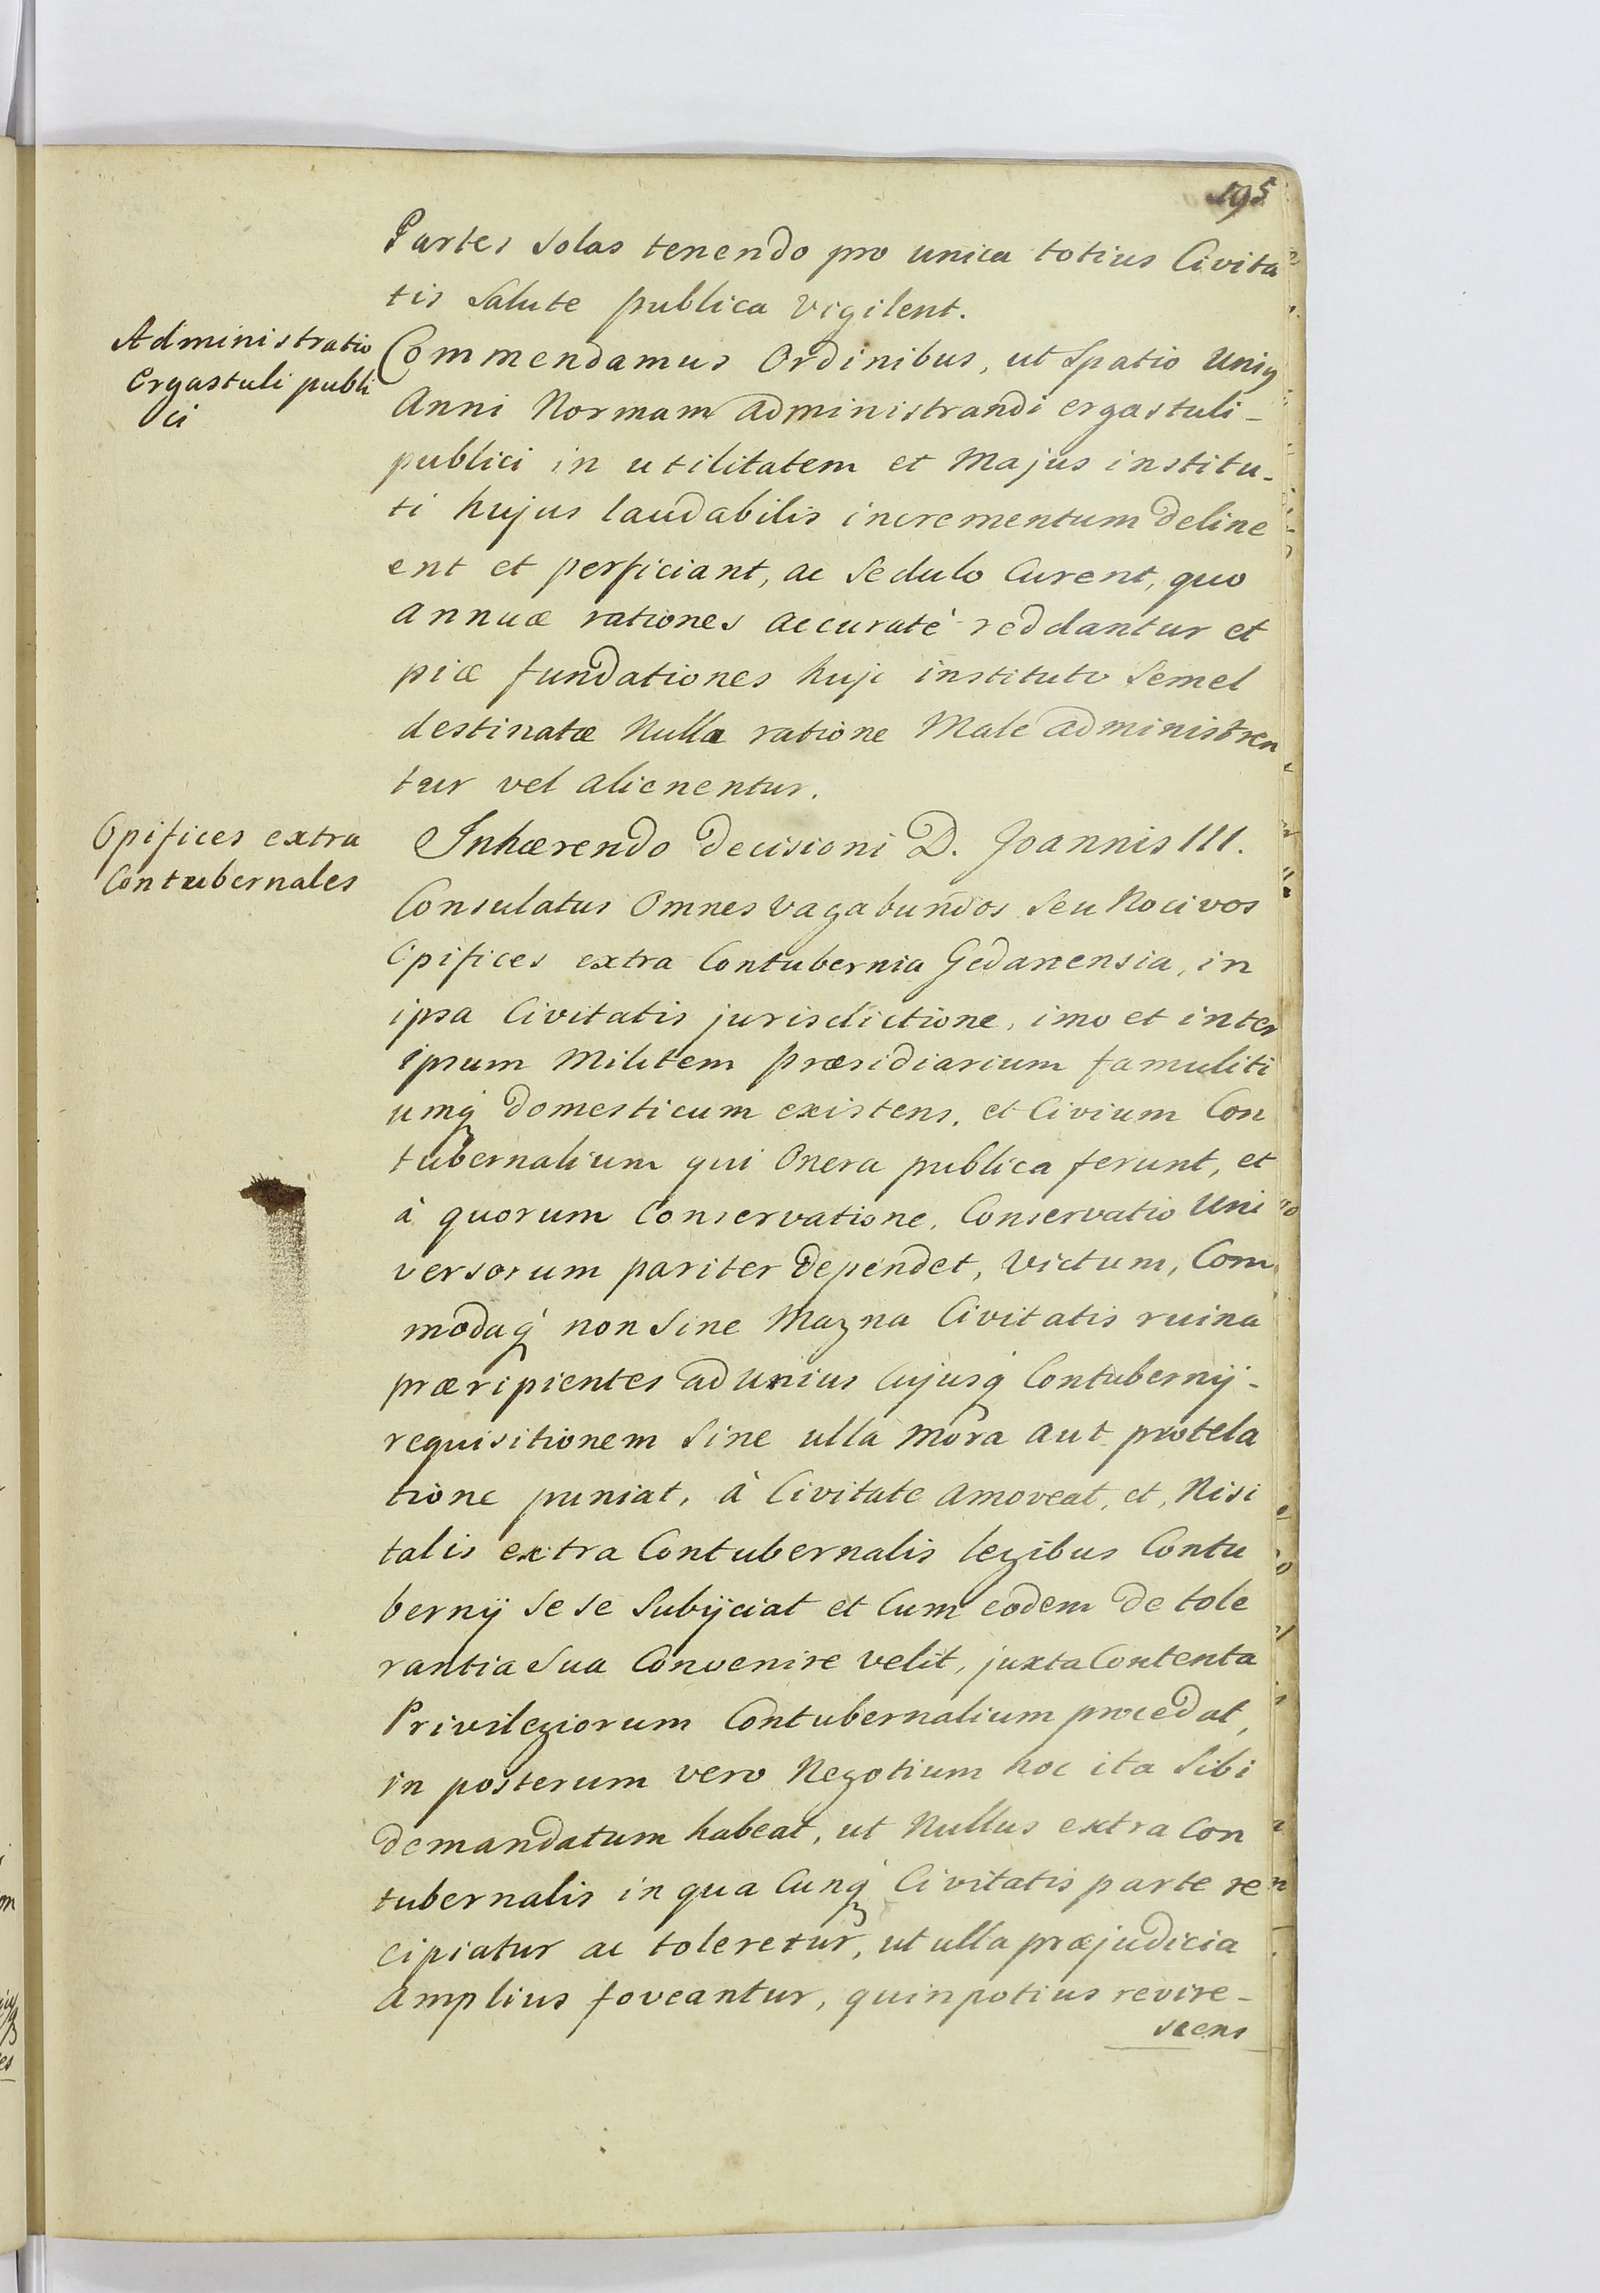 195
Partes Solas tenendo pro unica totius Civita
tis Salute publica vigilent.
Administratio
Ergastuli publi
ci
Commendamus Ordinibus, ut Spatio Unig
Anni Normam administrandi ergastuli-
publici in utilitatem et Majus institu-
ti hujus laudabilis incrementum deline
ent et perficiant, ac Sedulo Curent, quo
annuæ rationes accuratè reddantur et
piæ fundationes huic instituto Semel
destinatæ Nulla ratione Male administren
tur vel alienentur.
Opifices extra
Contubernales
Inhærendo decisioni D. Joannis III.
Consulatus Omnes vagabundos Seu Nocivos
Opifices extra Contubernia Gedanensia, in
ipsa Civitatis jurisdictione, imo et inter
ipsum Militem præsidiarium famuliti
umq domesticum existens, et Civium Con
tubernalium qui Onera publica ferunt, et
à quorum Conservatione, Conservatio Uni
versorum pariter dependet, Victum, Com
modaq non Sine Magna Civitatis ruina
præripientes ad Unius Cujusq Contubernij-
requisitionem Sine ulla mora aut protela
tione puniat, à Civitate amoveat, et, Nisi
talis extra Contubernalis legibus Contu
bernij se se Subijciat et Cum eodem de tole
rantia Sua Convenire velit, juxta Contenta
Privilegiorum Contubernalium procedat,
in posterum vero Negotium hoc ita Sibi
demandatum habeat, ut Nullus extra Con
tubernalis in qua Cunq Civitatis parte re
cipiatur ac toleretur, ut ulla præjudicia
amplius foveantur, quin potius revire-
scens